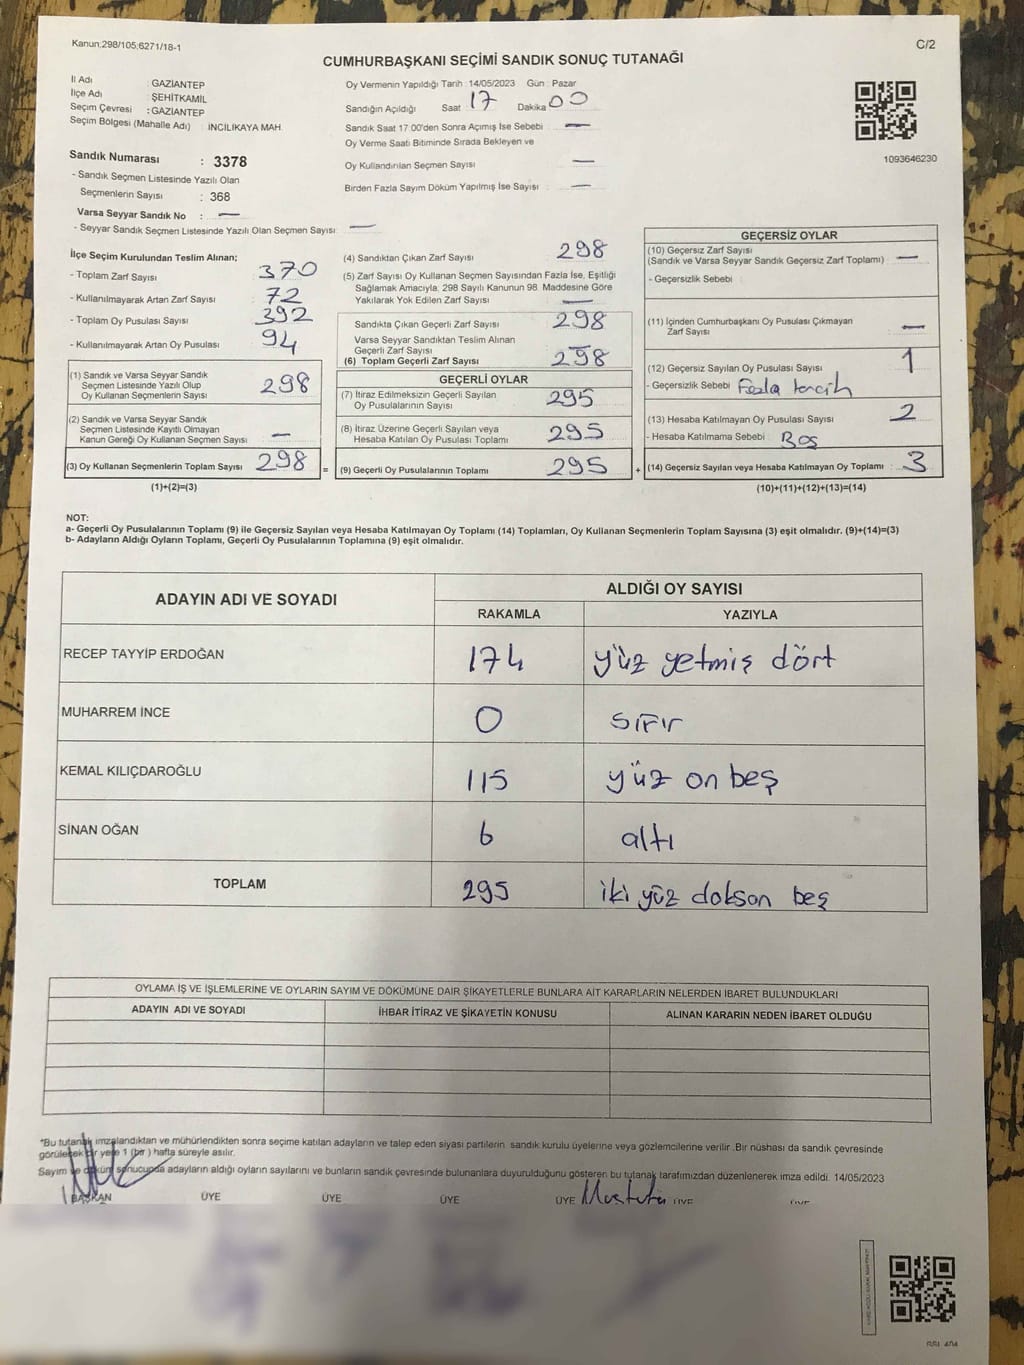 Kanun:298/105;6271/18-1
C/2
CUMHURBAŞKANI SEÇİMİ SANDIK SONUÇ TUTANAĞI
İl Adı : GAZİANTEP
İlçe Adı : ŞEHİTKAMİL
Seçim Çevresi : GAZİANTEP
Seçim Bölgesi (Mahalle Adı) : İNCİLİKAYA MAH.
Sandık Numarası : 3378
- Sandık Seçmen Listesinde Yazılı Olan
Seçmenlerin Sayısı : 368
Varsa Seyyar Sandık No : —
- Seyyar Sandık Seçmen Listesinde Yazılı Olan Seçmen Sayısı: —
Oy Vermenin Yapıldığı Tarih : 14/05/2023 Gün : Pazar
Sandığın Açıldığı Saat 17 Dakika 00
Sandık Saat 17:00'den Sonra Açımış İse Sebebi : —
Oy Verme Saati Bitiminde Sırada Bekleyen ve
Oy Kullandırılan Seçmen Sayısı : —
Birden Fazla Sayım Döküm Yapılmış İse Sayısı : —
1093646230
İlçe Seçim Kurulundan Teslim Alınan;
- Toplam Zarf Sayısı : 370
- Kullanılmayarak Artan Zarf Sayısı : 72
- Toplam Oy Pusulası Sayısı : 392
- Kullanılmayarak Artan Oy Pusulası : 94
(1) Sandık ve Varsa Seyyar Sandık
Seçmen Listesinde Yazılı Olup
Oy Kullanan Seçmenlerin Sayısı : 298
(2) Sandık ve Varsa Seyyar Sandık
Seçmen Listesinde Kayıtlı Olmayan
Kanun Gereği Oy Kullanan Seçmen Sayısı : —
(3) Oy Kullanan Seçmenlerin Toplam Sayısı : 298 =
(1)+(2)=(3)
(4) Sandıktan Çıkan Zarf Sayısı : 298
(5) Zarf Sayısı Oy Kullanan Seçmen Sayısından Fazla İse, Eşitliği
Sağlamak Amacıyla, 298 Sayılı Kanunun 98. Maddesine Göre
Yakılarak Yok Edilen Zarf Sayısı : —
Sandıkta Çıkan Geçerli Zarf Sayısı : 298
Varsa Seyyar Sandıktan Teslim Alınan
Geçerli Zarf Sayısı
(6) Toplam Geçerli Zarf Sayısı : 298
GEÇERLİ OYLAR
(7) İtiraz Edilmeksizin Geçerli Sayılan
Oy Pusulalarının Sayısı : 295
(8) İtiraz Üzerine Geçerli Sayılan veya
Hesaba Katılan Oy Pusulası Toplamı : 295
(9) Geçerli Oy Pusulalarının Toplamı : 295 +
GEÇERSİZ OYLAR
(10) Geçersiz Zarf Sayısı
(Sandık ve Varsa Seyyar Sandık Geçersiz Zarf Toplamı) : —
- Geçersizlik Sebebi :
(11) İçinden Cumhurbaşkanı Oy Pusulası Çıkmayan
Zarf Sayısı : —
(12) Geçersiz Sayılan Oy Pusulası Sayısı : 1
- Geçersizlik Sebebi : Fazla tercih
(13) Hesaba Katılmayan Oy Pusulası Sayısı : 2
- Hesaba Katılmama Sebebi : Boş
(14) Geçersiz Sayılan veya Hesaba Katılmayan Oy Toplamı : 3
(10)+(11)+(12)+(13)=(14)
NOT:
a- Geçerli Oy Pusulalarının Toplamı (9) ile Geçersiz Sayılan veya Hesaba Katılmayan Oy Toplamı (14) Toplamları, Oy Kullanan Seçmenlerin Toplam Sayısına (3) eşit olmalıdır. (9)+(14)=(3)
b- Adayların Aldığı Oyların Toplamı, Geçerli Oy Pusulalarının Toplamına (9) eşit olmalıdır.
ADAYIN ADI VE SOYADI
ALDIĞI OY SAYISI
RAKAMLA YAZIYLA
RECEP TAYYİP ERDOĞAN 174 yüz yetmiş dört
MUHARREM İNCE 0 sıfır
KEMAL KILIÇDAROĞLU 115 yüz on beş
SİNAN OĞAN 6 altı
TOPLAM 295 iki yüz dokson beş
OYLAMA İŞ VE İŞLEMLERİNE VE OYLARIN SAYIM VE DÖKÜMÜNE DAİR ŞİKAYETLERLE BUNLARA AİT KARARLARIN NELERDEN İBARET BULUNDUKLARI
ADAYIN ADI VE SOYADI İHBAR İTİRAZ VE ŞİKAYETİN KONUSU ALINAN KARARIN NEDEN İBARET OLDUĞU
*Bu tutanak imzalandıktan ve mühürlendikten sonra seçime katılan adayların ve talep eden siyasi partilerin, sandık kurulu üyelerine veya gözlemcilerine verilir. Bir nüshası da sandık çevresinde
görülecek bir yere 1 (bir ) hafta süreyle asılır.
Sayım ve döküm sonucunda adayların aldığı oyların sayılarını ve bunların sandık çevresinde bulunanlara duyurulduğunu gösteren bu tutanak tarafımızdan düzenlenerek imza edildi. 14/05/2023
BAŞKAN ÜYE ÜYE ÜYE ÜYE ÜYE ÜYE